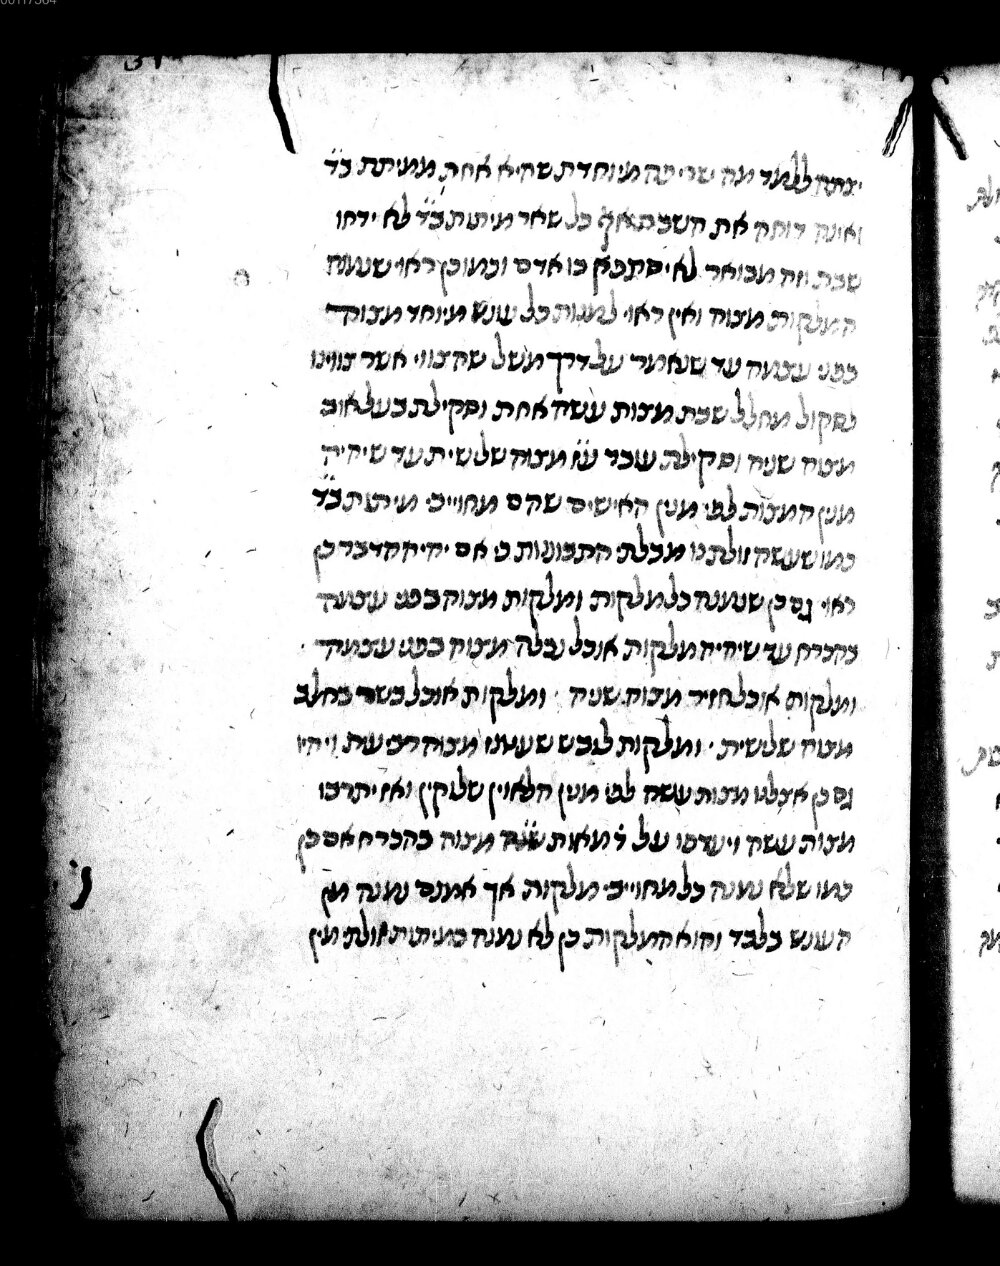 יצתה ללמד מה שריפה מיוחדת שהיא אחת ממיתת ב״ד
ואינה דוחה את השבת אף כל שאר מיתות ב״ד לא ידחו
שבת וזה מבואר לא יסתפק בו אדם וכמו כן ראוי שנמנה
המלקות מצוה ואין ראוי למנות כל עונש מיוחד מצוה
בפני עצמה עד שנאמר על דרך משל שהצווי אשר צווינו
לסקול מחלל שבת מצות עשה אחת וסקילת בעל אוב
מצוה שניה וסקילת עובד ע״ז מצוה שלישית עד שיהיה
מנין המצות לפי מנין האישים שהם מחוייבי מיתות ב״ד
כמו שעשה זולתנו מבלתי התבוננות כי אם יהיה הדבר כן
ראוי גם כן שנמנה כל מלקות ומלקות מצוה בפני עצמה
בהכרח עד שיהיה מלקות אוכל נבלה מצוה בפני עצמה
ומלקות אוכל חזיר מצוה שניה ומלקות אוכל בשר בחלב
מצוה שלישית ומלקות לובש שעטנז מצוה רביעית ויהיו
גם כן אצלנו מצות עשה לפי מנין הלאוין שלוקין ואז יתרבו
מצות עשה ויעדפו על מאות מצוה בהכרח אם כן
כמו שלא נמנה כל מחוייבי מלקות אך אמנם נמנה מין
העונש בלבד והוא המלקות כן לא נמנה במיתות אולתי מין